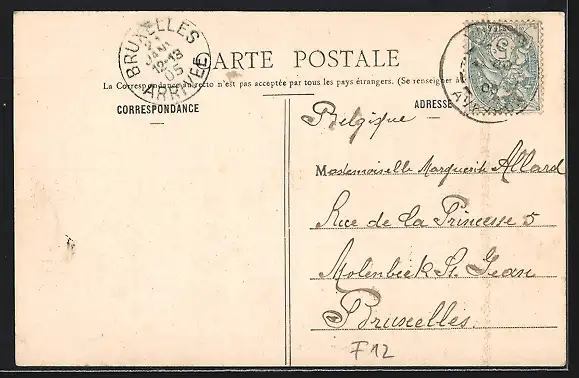 BRUXELLES
JANV
12-13
05
ARRIVÉE
CARTE POSTALE
La Correspondance au recto n'est pas acceptée par tous les pays étrangers. (Se renseigner à
CORRESPONDANCE
ADRESSE
Belgique
Mademoiselle Marguerite Allard
Rue de la Princesse 5
Molenbeek St. Jean
Bruxelles.
F12